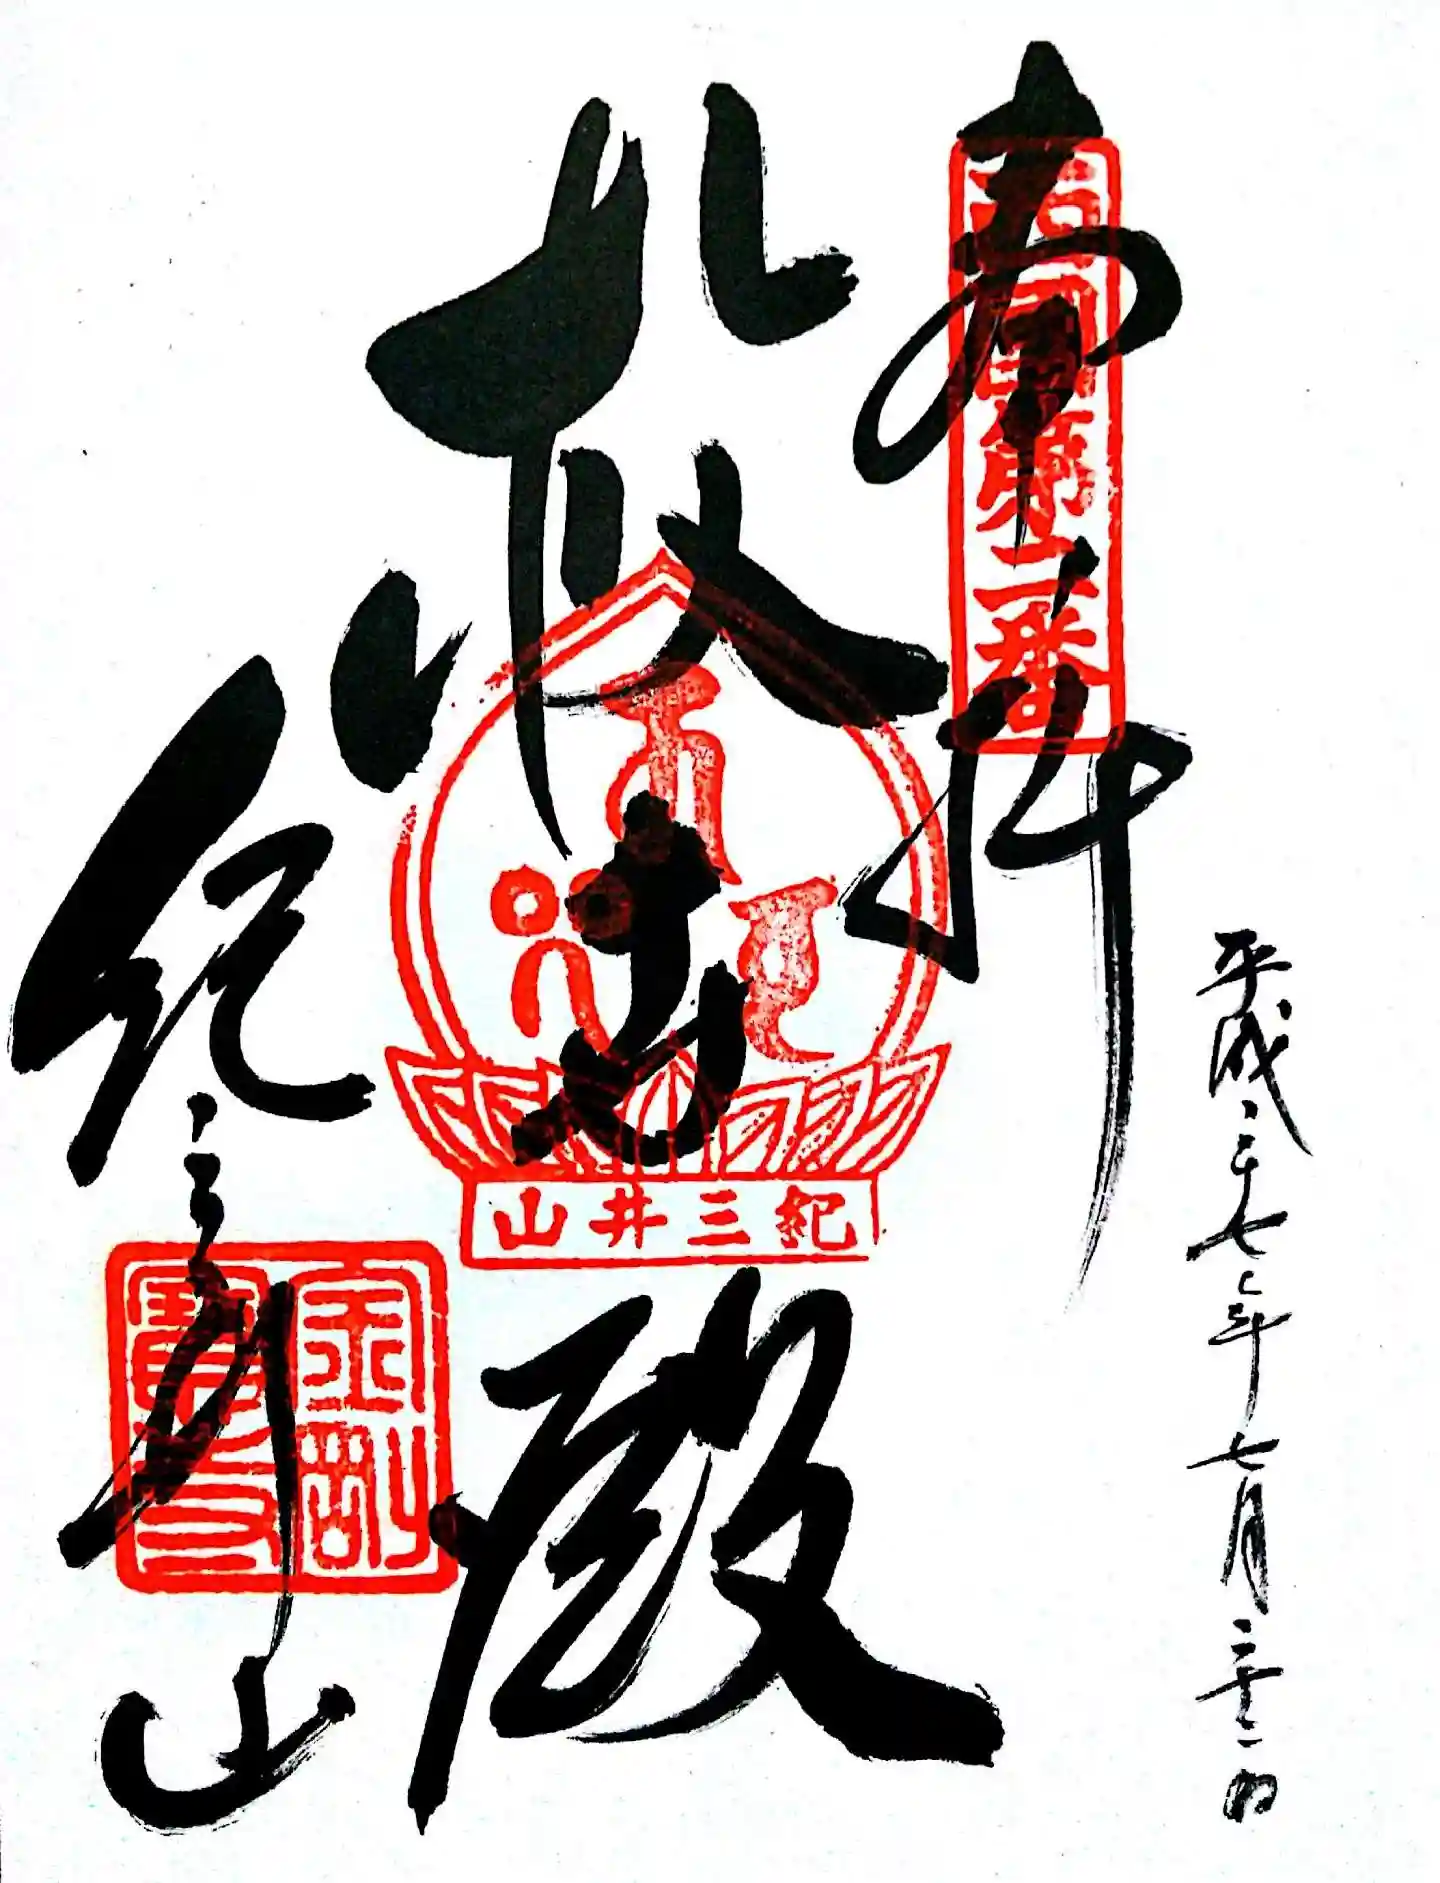 奉拝
西国第二番
平成二十七年七月二十二日
救世殿
紀三井山
紀三井山
金剛
寶寺